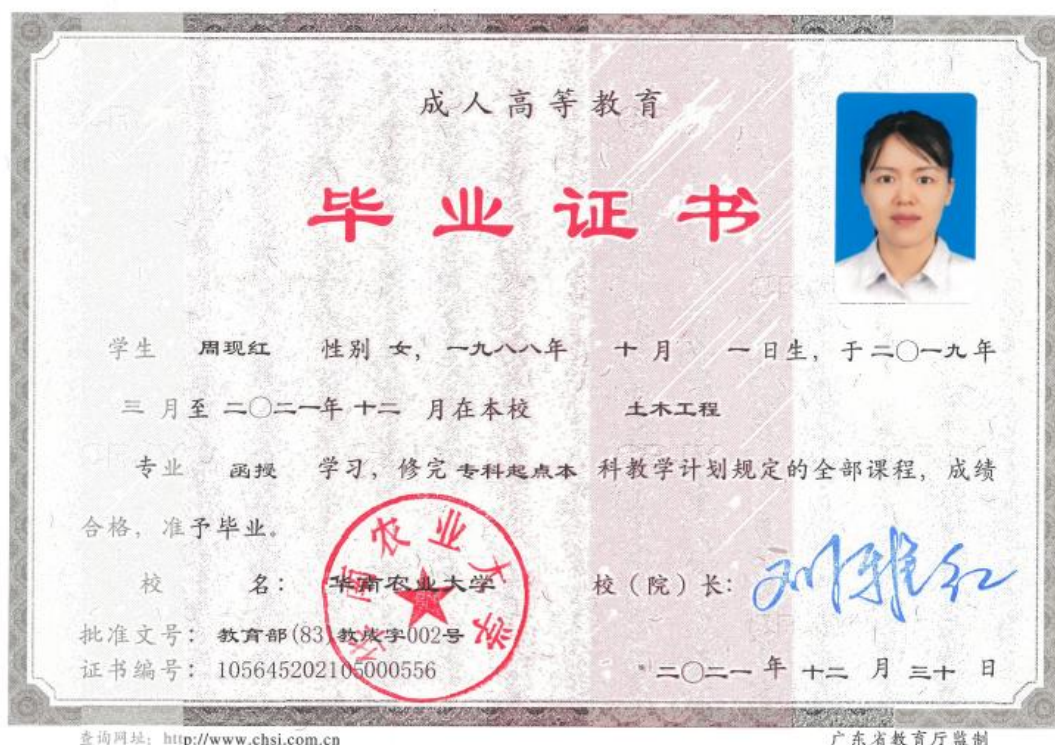 成人高等教育
毕业证书
学生 周现红 性别 女，一九八八年 十月 一日生，于二〇一九年
三月至二〇二一年十二月在本校 土木工程
专业 函授 学习，修完专科起点本科教学计划规定的全部课程，成绩
合格，准予毕业。
华南农业大学
校 名：华南农业大学 校（院）长：刘雅红
批准文号：教育部(83)教成字002号
证书编号：105645202105000556 二〇二一年十二月三十日
查询网址：http://www.chsi.com.cn 广东省教育厅监制